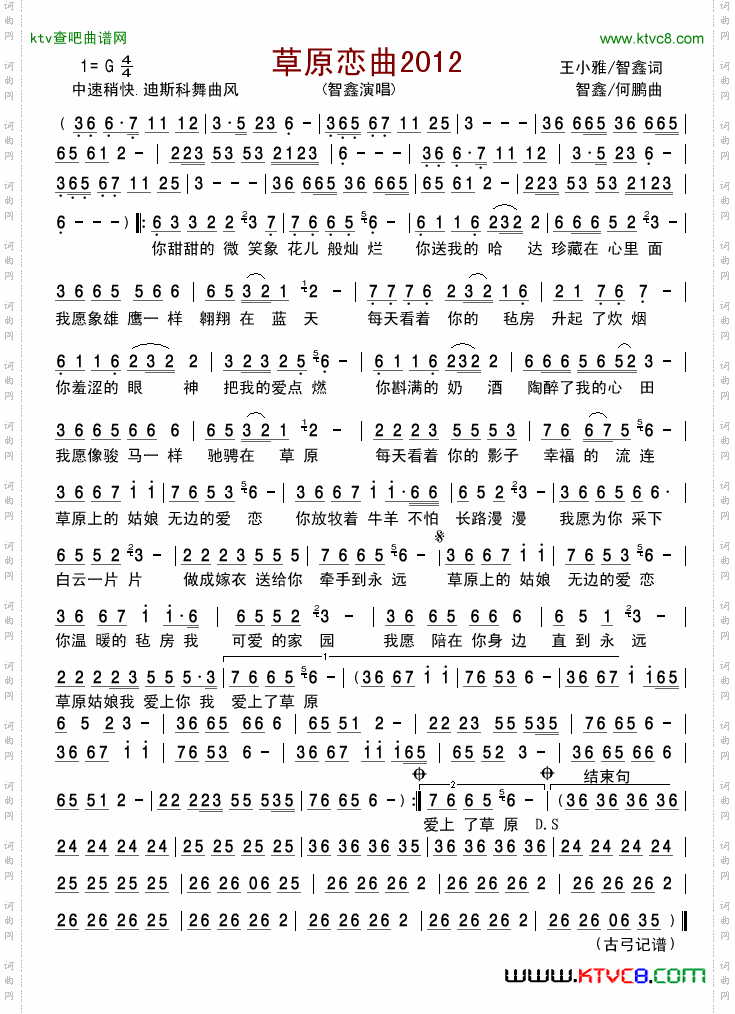 ktv查吧曲谱网
www.ktvc8.com
草原恋曲2012
1= G 4/4
王小雅/智鑫词
中速稍快.迪斯科舞曲风
(智鑫演唱)
智鑫/何鹏曲
( 36 6·7 11 12 | 3·5 23 6 - | 365 67 11 25 | 3 - - - | 36 665 36 665 |
65 61 2 - | 223 53 53 2123 | 6 - - - | 36 6·7 11 12 | 3·5 23 6 - |
365 67 11 25 | 3 - - - | 36 665 36 665 | 65 61 2 - | 223 53 53 2123 |
6 - - - ) |: 6 3 3 2 2 23 7 | 7 6 6 5 56 - | 6 1 1 6 232 2 | 6 6 6 5 2 23 - |
你甜甜的 微 笑象 花儿 般灿 烂 你送我的 哈 达 珍藏在 心里 面
3 6 6 5 5 6 6 | 6 5 3 2 1 12 - | 7 7 7 6 2 3 2 1 6 | 2 1 7 6 7 - |
我愿象雄 鹰一 样 翱翔 在 蓝 天 每天看着 你的 毡房 升起 了炊 烟
6 1 1 6 2 3 2 2 | 3 2 2 2 1 56 - | 6 1 1 6 232 2 | 6 6 6 5 6 52 3 - |
你羞涩的 眼 神 把我的爱点 燃 你斟满的 奶 酒 陶醉了我的心 田
3 6 6 5 6 6 6 | 6 5 3 2 1 12 - | 2 2 2 3 5 5 5 3 | 7 6 6 7 5 56 - |
我愿像骏 马一样 驰骋在 草 原 每天看着 你的 影子 幸福 的 流 连
3 6 6 7 1 1 | 7 6 5 3 56 - | 3 6 6 7 1 1·6 6 | 6 5 2 23 - | 3 6 6 5 6 6· |
草原上的 姑娘 无边的爱 恋 你放牧着 牛羊 不怕 长路漫 漫 我愿为你 采下
6 5 5 2 23 - | 2 2 2 3 5 5 5 | 7 6 6 5 56 - | 3 6 6 7 1 1 | 7 6 5 3 56 - |
白云一片 片 做成嫁衣 送给你 牵手到永 远 草原上的 姑娘 无边的爱 恋
3 6 6 7 1 1·6 | 6 5 5 2 23 - | 3 6 6 5 6 6 6 | 6 5 1 23 - |
你温 暖的 毡 房 我 可爱 的家 园 我愿 陪在 你身 边 直 到 永 远
1
2 2 2 2 3 5 5 5·3 | 7 6 6 5 56 - | (36 67 1 1 | 76 53 6 - | 36 67 1 165
草原姑娘我 爱上你 我 爱上了草 原
6 5 2 3 - | 36 65 66 6 | 65 51 2 - | 22 23 55 535 | 76 65 6 - |
36 67 1 1 | 76 53 6 - | 36 67 11 165 | 65 52 3 - | 36 65 66 6 |
2 结束句
65 51 2 - | 22 223 55 535 | 76 65 6 - ) :| 7 6 6 5 56 - | (36 36 36 36 |
爱上 了草 原 D.S
24 24 24 24 | 25 25 25 25 | 25 25 25 35 | 36 36 36 36 | 24 24 24 24 |
25 25 25 25 | 26 26 06 25 | 26 26 26 26 | 26 26 26 2 | 26 26 26 2 |
26 26 26 26 | 26 26 26 2 | 26 26 26 2 | 26 26 06 35 ) ||
(古弓记谱)
www.KTVC8.com